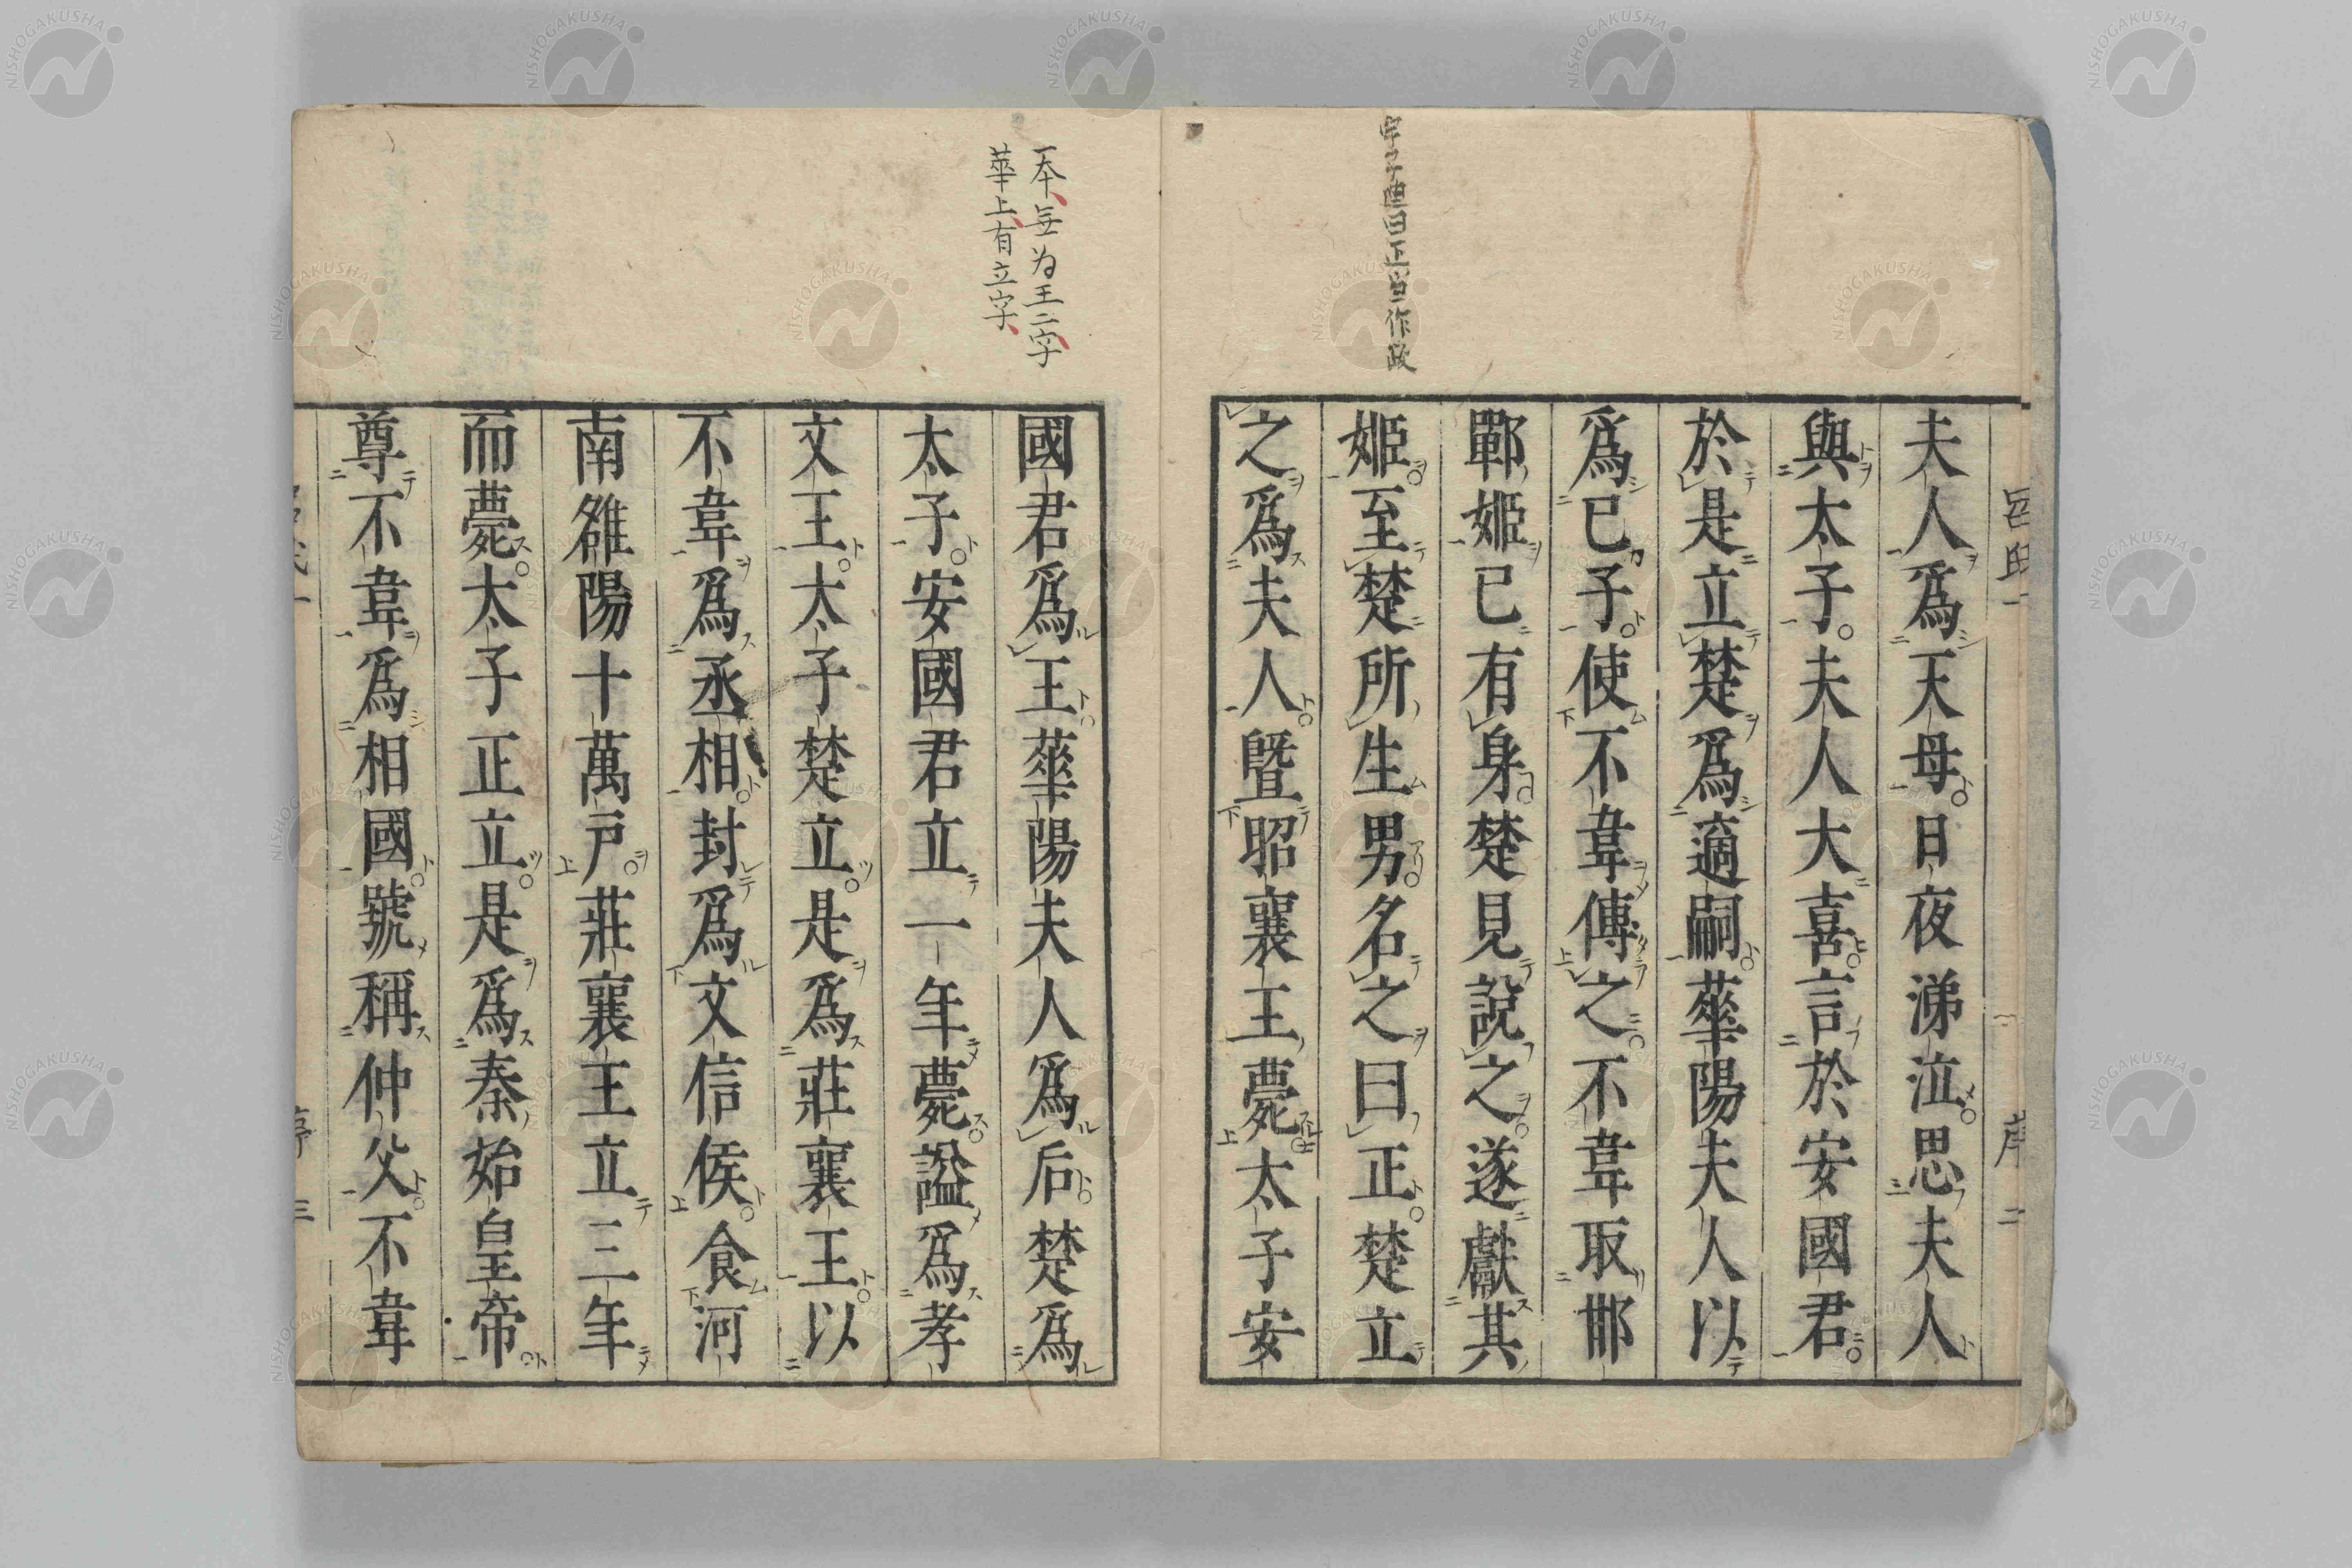 夫人爲天母日夜涕泣思夫人
與太子夫人大喜言於安國君
於是立楚爲適嗣華陽夫人以
爲己子使不韋傅之不韋取邯
鄲姬已有身楚見說之遂獻其
姬至楚所生男名之曰正楚立
之爲夫人曁昭襄王薨太子安
一本無为王二字
華上有立字
國君爲王華陽夫人爲后楚爲
太子安國君立一年薨諡爲孝
文王太子楚立是爲莊襄王以
不韋爲丞相封爲文信侯食河
南雒陽十萬戸莊襄王立三年
而薨太子正立是爲秦始皇帝
尊不韋爲相國號稱仲父不韋
NISHOGAKUSHA